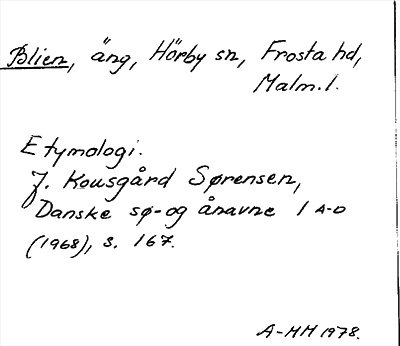 Blien, äng, Hörby sn, Frosta hd,
Malm. l.
Etymologi.
J. Kousgård Sørensen,
Danske sø- og ånavne 1 A-D
(1968), s. 167.
A-HM 1978.